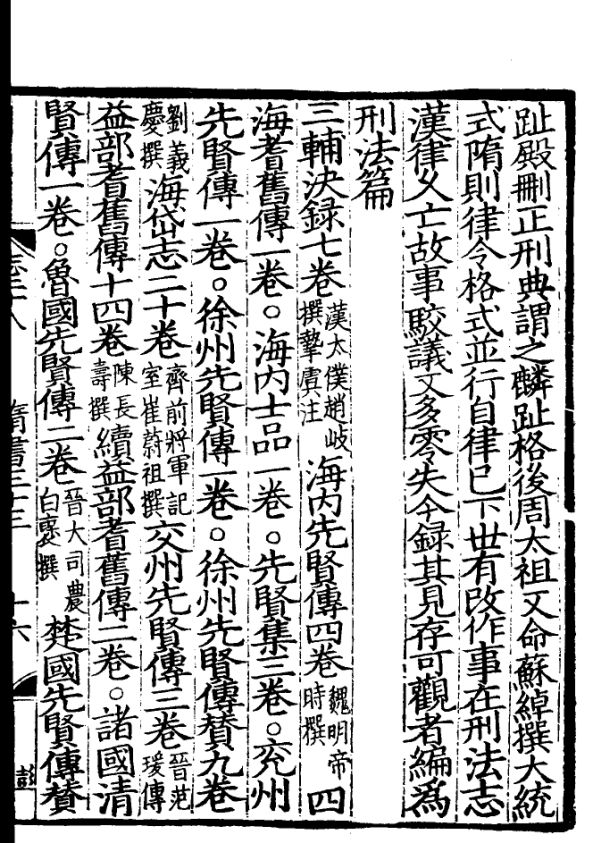 趾殿刪正刑典謂之麟趾格後周太祖又命蘇綽撰大統
式隋則律令格式並行自律已下世有改作事在刑法志
漢律久亡故事駁議又多零失今録其見存可觀者編為
刑法篇
三輔决録七卷漢太僕趙岐撰摯虞注海内先賢傳四卷魏明帝時撰四
海耆舊傳一卷。海内士品一卷。先賢集三卷。兖州
先賢傳一卷。徐州先賢傳一卷。徐州先賢傳賛九卷
劉義慶撰海岱志二十卷齊前將軍記室崔蔚祖撰交州先賢傳三卷晉范瑗傳
益部耆舊傳十四卷陳長壽撰續益部耆舊傳二卷。諸國清
賢傳一卷。魯國先賢傳二卷晉大司農白褒撰楚國先賢傳賛
志二八
隋書三十三
十六
彭